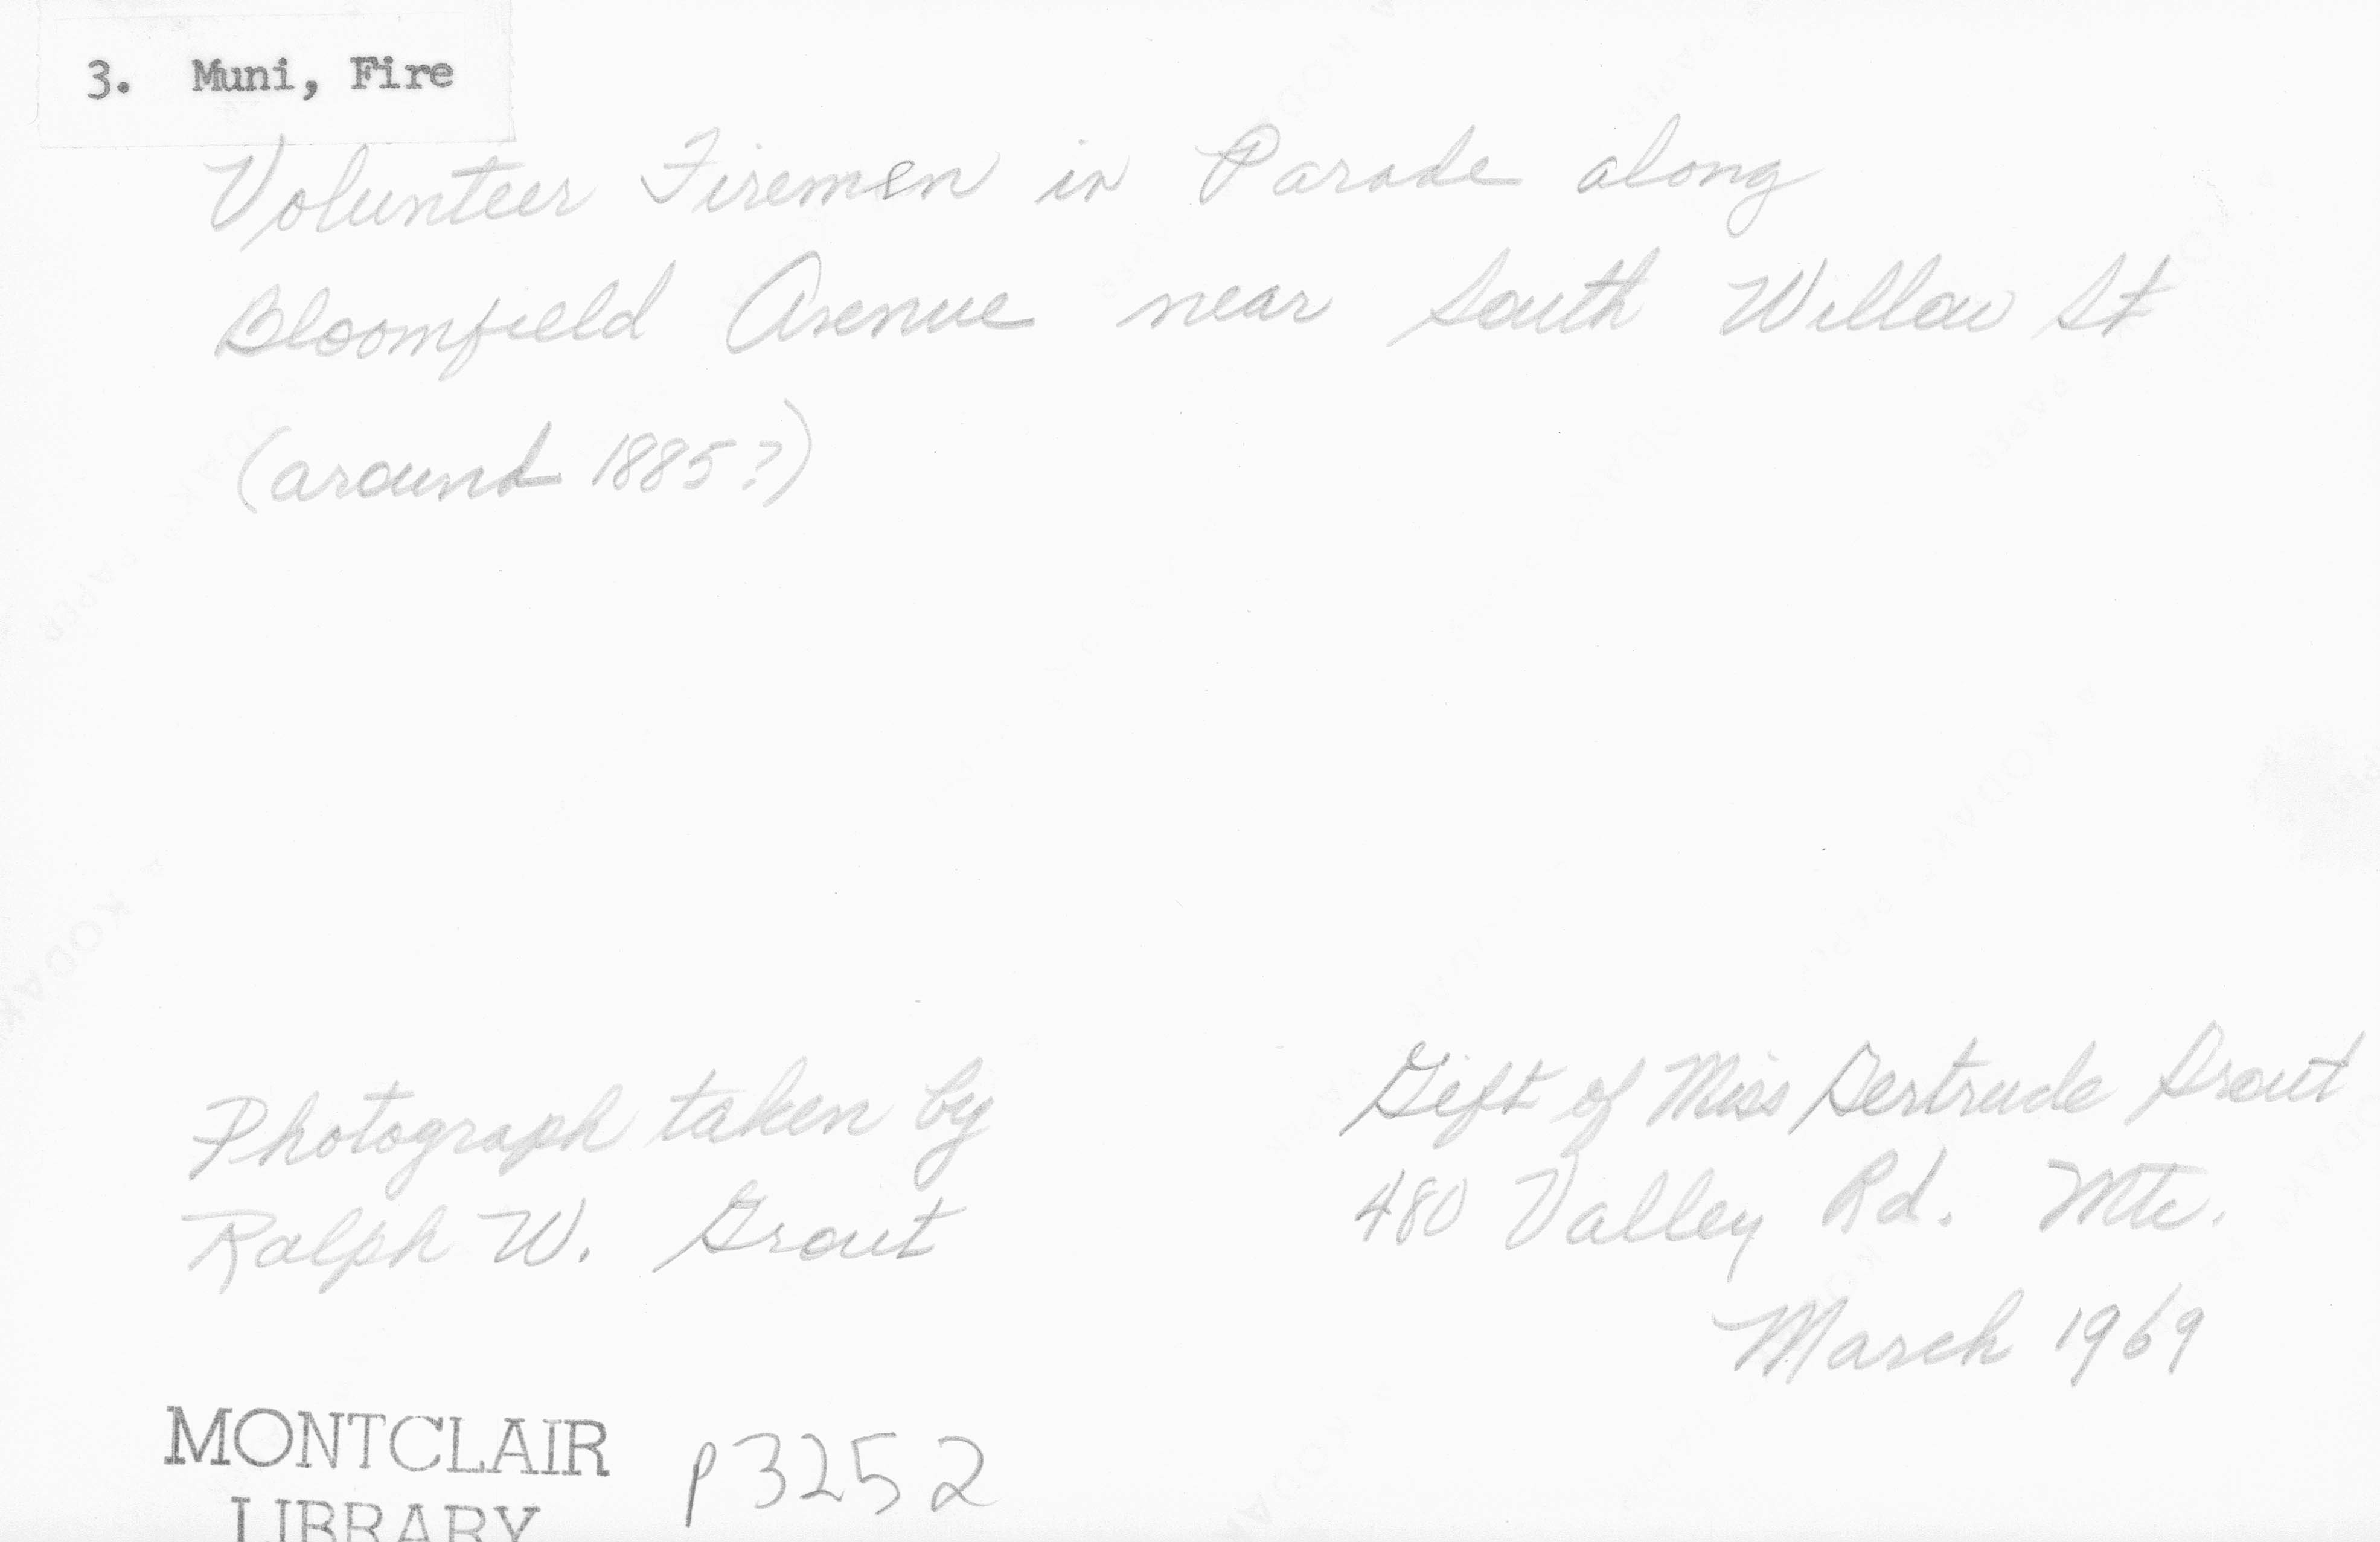 3. Muni, Fire
Volunteer Firemen in Parade along
Bloomfield Avenue near South Willow St
(around 1885?)
Photograph taken by
Ralph W. Grout
Gift of Miss Gertrude Grout
480 Valley Rd. Mtc.
March 1969
MONTCLAIR
LIBRARY
p3252